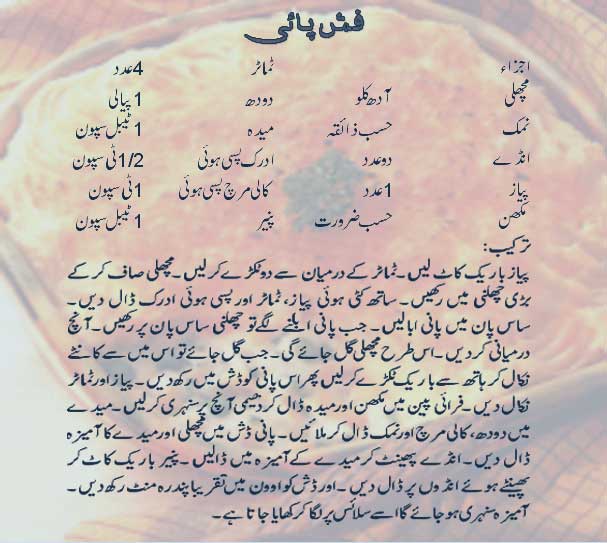 فش پائی
اجزاء ٹماٹر 4عدد
مچھلی آدھ کلو دودھ 1 پیالی
نمک حسب ذائقہ میدہ 1 ٹیبل سپون
انڈے دو عدد ادرک پسی ہوئی 1/2 ٹی سپون
پیاز 1عدد کالی مرچ پسی ہوئی 1ٹی سپون
مکھن حسب ضرورت پنیر 1 ٹیبل سپون
ترکیب:
پیاز باریک کاٹ لیں۔ ٹماٹر کے درمیان سے دو ٹکڑے کرلیں۔ مچھلی صاف کر کے
بڑی چھلنی میں رکھیں۔ ساتھ کٹی ہوئی پیاز، ٹماٹر اور پسی ہوئی ادرک ڈال دیں۔
ساس پان میں پانی ابالیں۔ جب پانی ابلنے لگے تو چھلنی ساس پان پر رکھیں۔ آنچ
درمیانی کردیں۔ اس طرح مچھلی گل جائے گی۔ جب گل جائے تو اس میں سے کانٹے
نکال کر ہاتھ سے باریک ٹکڑے کرلیں پھر اس پانی کو ڈش میں رکھ دیں۔ پیاز اور ٹماٹر
نکال دیں۔ فرائی پین میں مکھن اور میدہ ڈال کر دھیمی آنچ پر سنہری کرلیں۔ میدے
میں دودھ، کالی مرچ اور نمک ڈال کر ملائیں۔ پانی ڈش میں مچھلی اور میدے کا آمیزہ
ڈال دیں۔ انڈے پھینٹ کر میدے کے آمیزہ میں ڈالیں۔ پنیر باریک کاٹ کر
پھینٹے ہوئے انڈوں پر ڈال دیں۔ اور ڈش کو اوون میں تقریبا پندرہ منٹ رکھ دیں۔
آمیزہ سنہری ہو جائے گا اسے سلائس پر لگا کر کھایا جاتا ہے۔